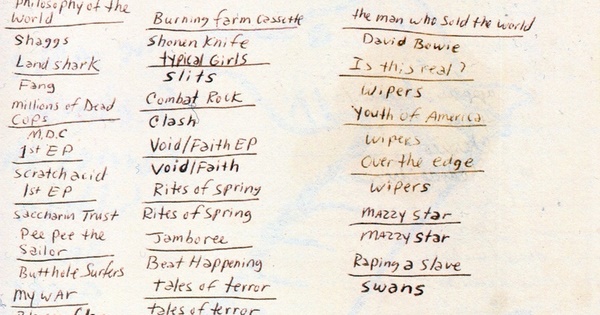 Philosophy of the
World
Shaggs
Land shark
Fang
millions of Dead
COPS
M.D.C
1st EP
scratch acid
1st EP
saccharin Trust
Pee Pee the
Sailor
Butthole Surfers
My WAR
Burning farm Cassette
Shonen Knife
typical Girls
Slits
Combat Rock
Clash
Void/Faith EP
Void/Faith
Rites of Spring
Rites of Spring
Jamboree
Beat Happening
tales of terror
tales of terror
the man who Sold the world
David Bowie
Is this real?
Wipers
Youth of America
Wipers
Over the edge
Wipers
MAZZY Star
MAZZY Star
Raping a Slave
Swans